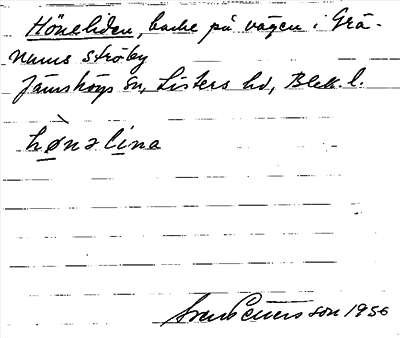 Höneliden, backe på vägen i Grä-
nums ströby
Jämshögs sn, Listers hd, Blek. l.
hø̀nəlina
Sven Petersson 1956